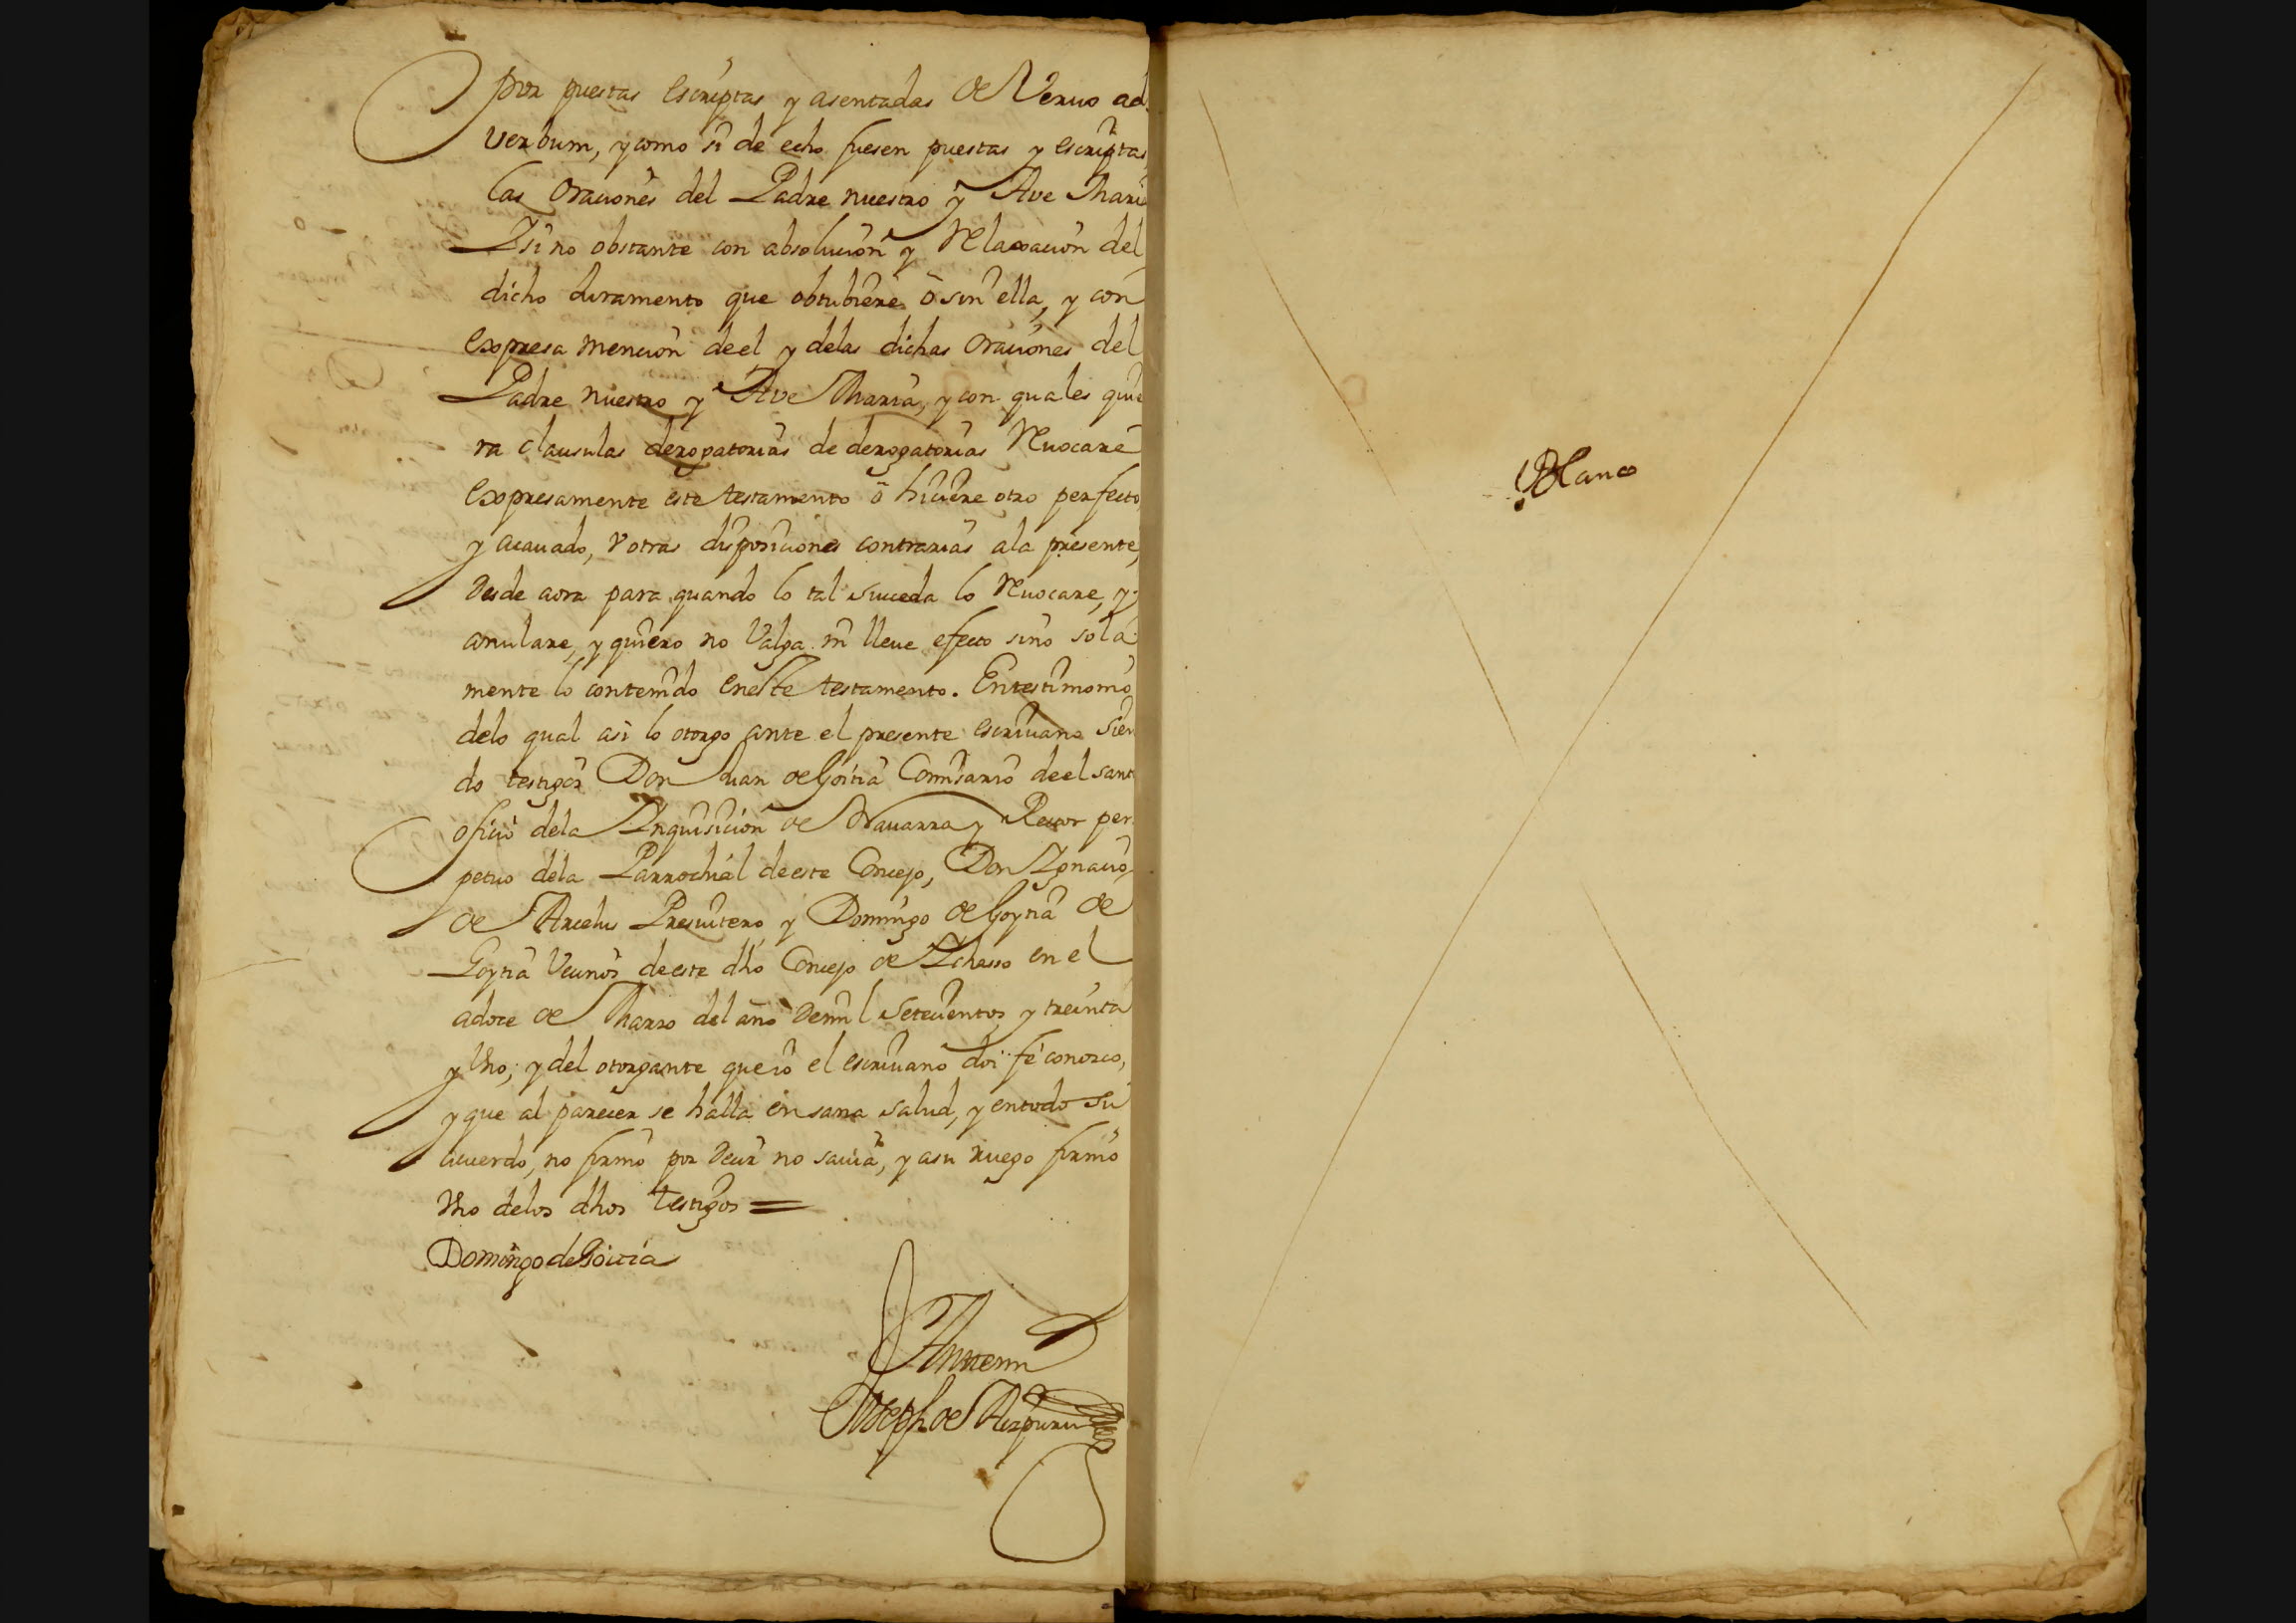 por puestas escriptas y asentadas de Veruo ad
verbum, y como si de echo fuesen puestas y escriptas
las oraciones del Padre nuestro y Ave Mari
Y si no obstante con absolucion y Relaxacion del
dicho Juramento que obtubiere o sin ella, y con
expresa mencion de el y delas dichas oraciones del
Padre nuestro y Ave Maria, y con quales quie
ra clausulas derogatorias de derogatorias Reuocare
expresamente este testamento o hiciere otro perfecto
y acauado, v otras disposiciones contrarias ala presente,
desde aora para quando lo tal suceda lo Reuocare, y
anulare, y quiero no Valga ni lleue efecto sino sola
mente lo contenido eneste testamento. En testimonio
delo qual asi lo otorgo ante el presente escriuano sien
do testigos Don Juan de Goitia Comisario de el sant
oficio dela Inquisicion de Nauarra y Rector per
petuo dela Parrochial de este Concejo, Don Ignacio
de Arcelus Presuitero y Domingo de Goytia de
Goytia Vecinos de este dho Concejo de Ichasso en el
adoce de Marzo del año de mil Setecientos y treinta
y Vno; y del otorgante que io el escriuano doi fe conozco,
y que al parecer se halla en sana salud, y en todo su
acuerdo, no firmo por decir no sauia, y asu ruego firmo
Vno delos dhos testigos =
Domingo de Goitia
Ante mi
Joseph de Aizpuru
Blanco